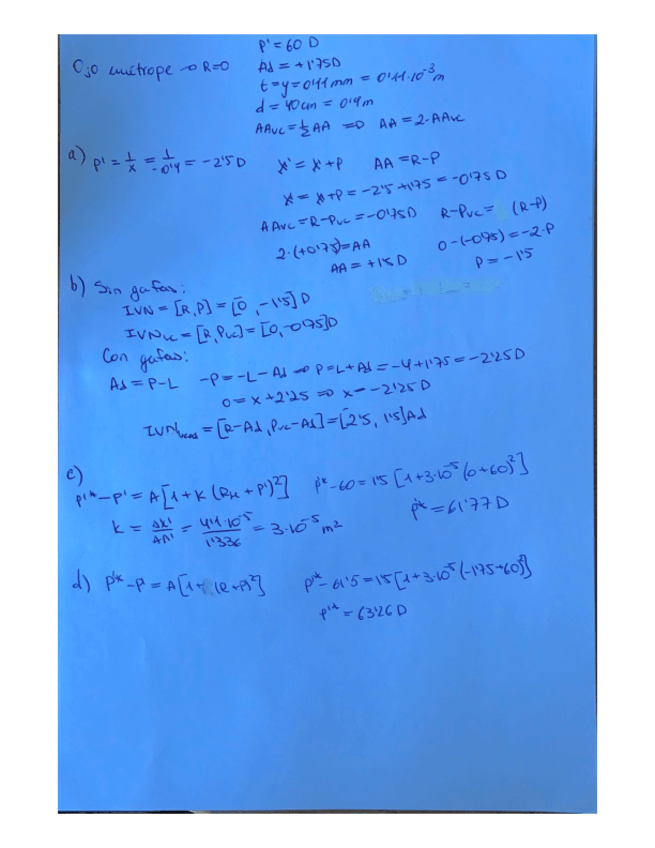 P' = 60 D
Ojo emétrope → R=0
Ad = +1'75D
t = y = 0'11 mm = 0'11·10⁻³ m
d = 40cm = 0'4m
AAvc = ½ AA ⇒ AA = 2·AAvc
a) P' = 1/x = 1/-0'4 = -2'5 D
X' = X+P AA = R-P
X = X+P = -2'5 + 1'75 = -0'75 D
AAvc = R-Pvc = -0'75D R-Pvc = (R-P)
2·(+0'75) = AA 0-(-0'75) = -2·P
AA = +1'5 D P = -1'5
b) Sin gafas:
IVN = [R,P] = [0, -1'5] D
IVNvc = [R,Pvc] = [0,-0'75]D
Con gafas:
Ad = P-L -P = -L-Ad → P = L+Ad = -4+1'75 = -2'25D
0 = x+2'25 ⇒ x = -2'25 D
= [R-Ad, Pvc-Ad] = [2'5, 1'5]Ad
c)
P'* - P' = A[1+K(RH+P')²] P'*-60 = 1'5 [1+3·10⁻⁵(0+60)²]
K = ΔX'/An' = 4'1·10⁻⁵/1'336 = 3·10⁻⁵ m²
P'* = 61'77 D
d) P'*-P' = A[1+ (R+P')²] P'*-61'5 = 1'5[1+3·10⁻⁵(-1'75+60)²]
P'* = 63'26 D